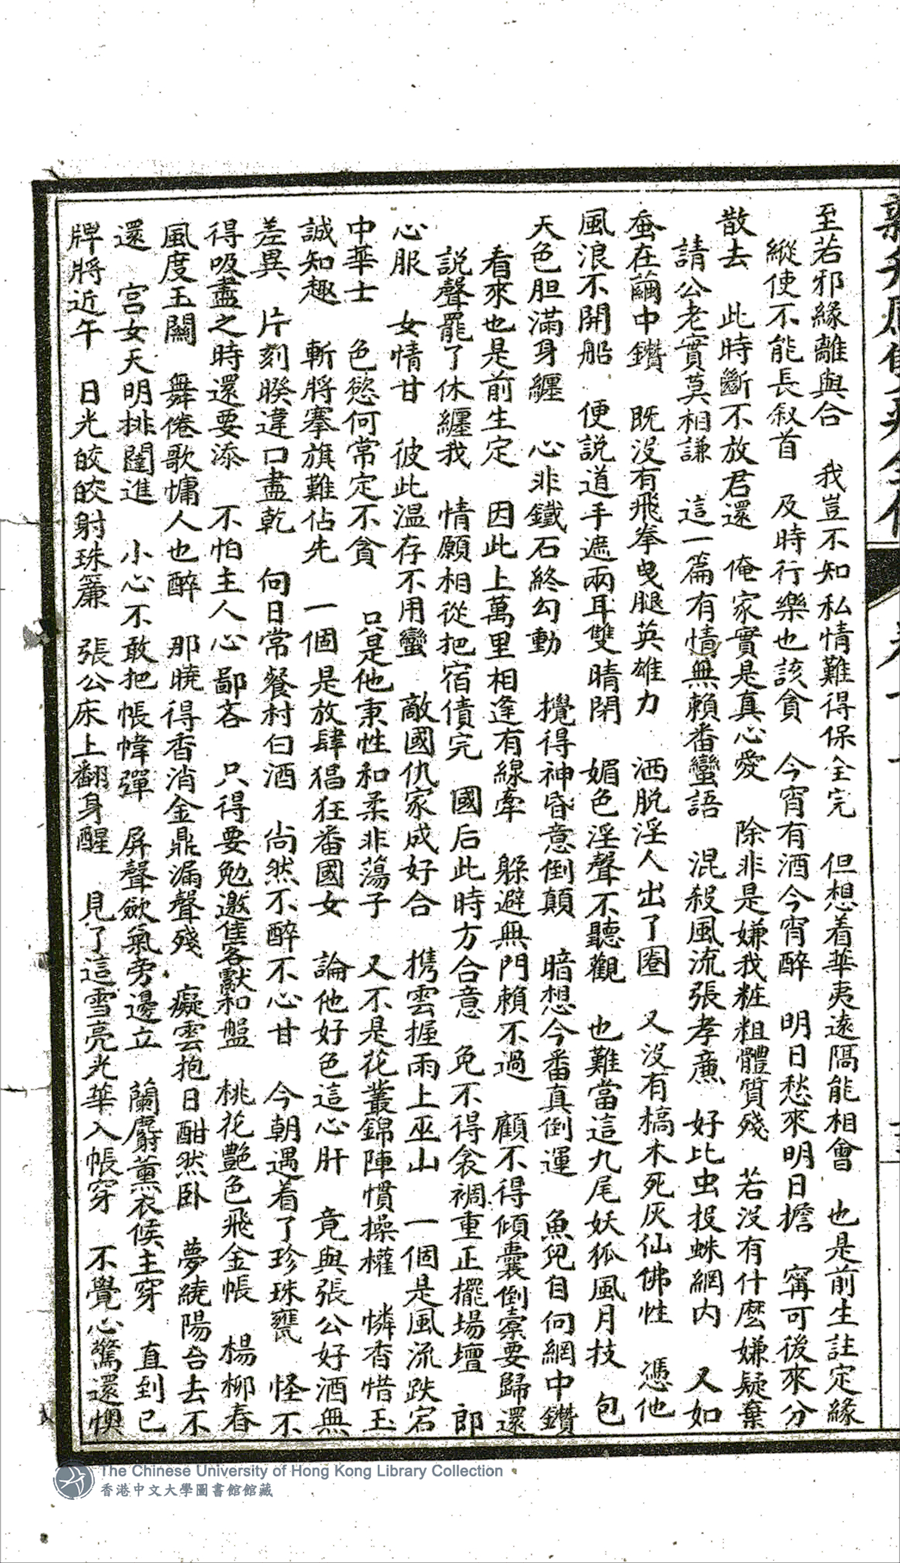 至若邪緣離與合　我豈不知私情難得保全完　但想着華夷遠隔能相會　也是前生註定緣
縱使不能長叙首　及時行樂也該貪　今宵有酒今宵醉　明日愁來明日擔　寗可後來分
散去　此時斷不放君還　俺家實是真心愛　除非是嫌我粧粗體質殘　若没有什麽嫌疑棄
請公老實莫相謙　這一篇有情無賴番蠻語　混殺風流張孝亷　好比虫投蛛網内　又如
蚕在繭中鑽　既没有飛拳曳腿英雄力　洒脱淫人出了圏　又没有槁木死灰仙佛性　憑他
風浪不開船　便説道手遮兩耳雙睛閉　媚色淫聲不聽觀　也難當這九尾妖狐風月技　包
天色胆滿身纏　心非鐵石終勾動　攪得神昏意倒顛　暗想今番真倒運　魚兒自向網中鑽
看來也是前生定　因此上萬里相逢有線牽　躲避無門賴不過　顧不得傾囊倒橐要歸還
説聲罷了休纏我　情願相從把宿債完　國后此時方合意　免不得衾裯重正擺場壇　郎
心服　女情甘　彼此温存不用蠻　敵國仇家成好合　携雲握雨上巫山　一個是風流跌宕
中華士　色慾何常定不貪　只是他秉性和柔非蕩子　又不是花叢錦陣慣操權　憐香惜玉
誠知趣　斬將搴旗難佔先　一個是放肆猖狂番國女　論他好色這心肝　竟與張公好酒無
差異　片刻暌違口盡乾　向日常餐村白酒　尚然不醉不心甘　今朝遇着了珍珠甕　怪不
得吸盡之時還要添　不怕主人心鄙吝　只得要勉邀佳客獻和盤　桃花艷色飛金帳　楊柳春
風度玉關　舞倦歌慵人也醉　那曉得香消金鼎漏聲殘　癡雲抱日酣然卧　夢繞陽台去不
還　宫女天明排闥進　小心不敢把帳幃彈　屏聲歛氣旁邊立　蘭麝薰衣候主穿　直到已
牌將近午　日光皎皎射珠簾　張公床上翻身醒　見了這雪亮光華入帳穿　不覺心驚還惧
The Chinese University of Hong Kong Library Collection
香港中文大學圖書館館藏